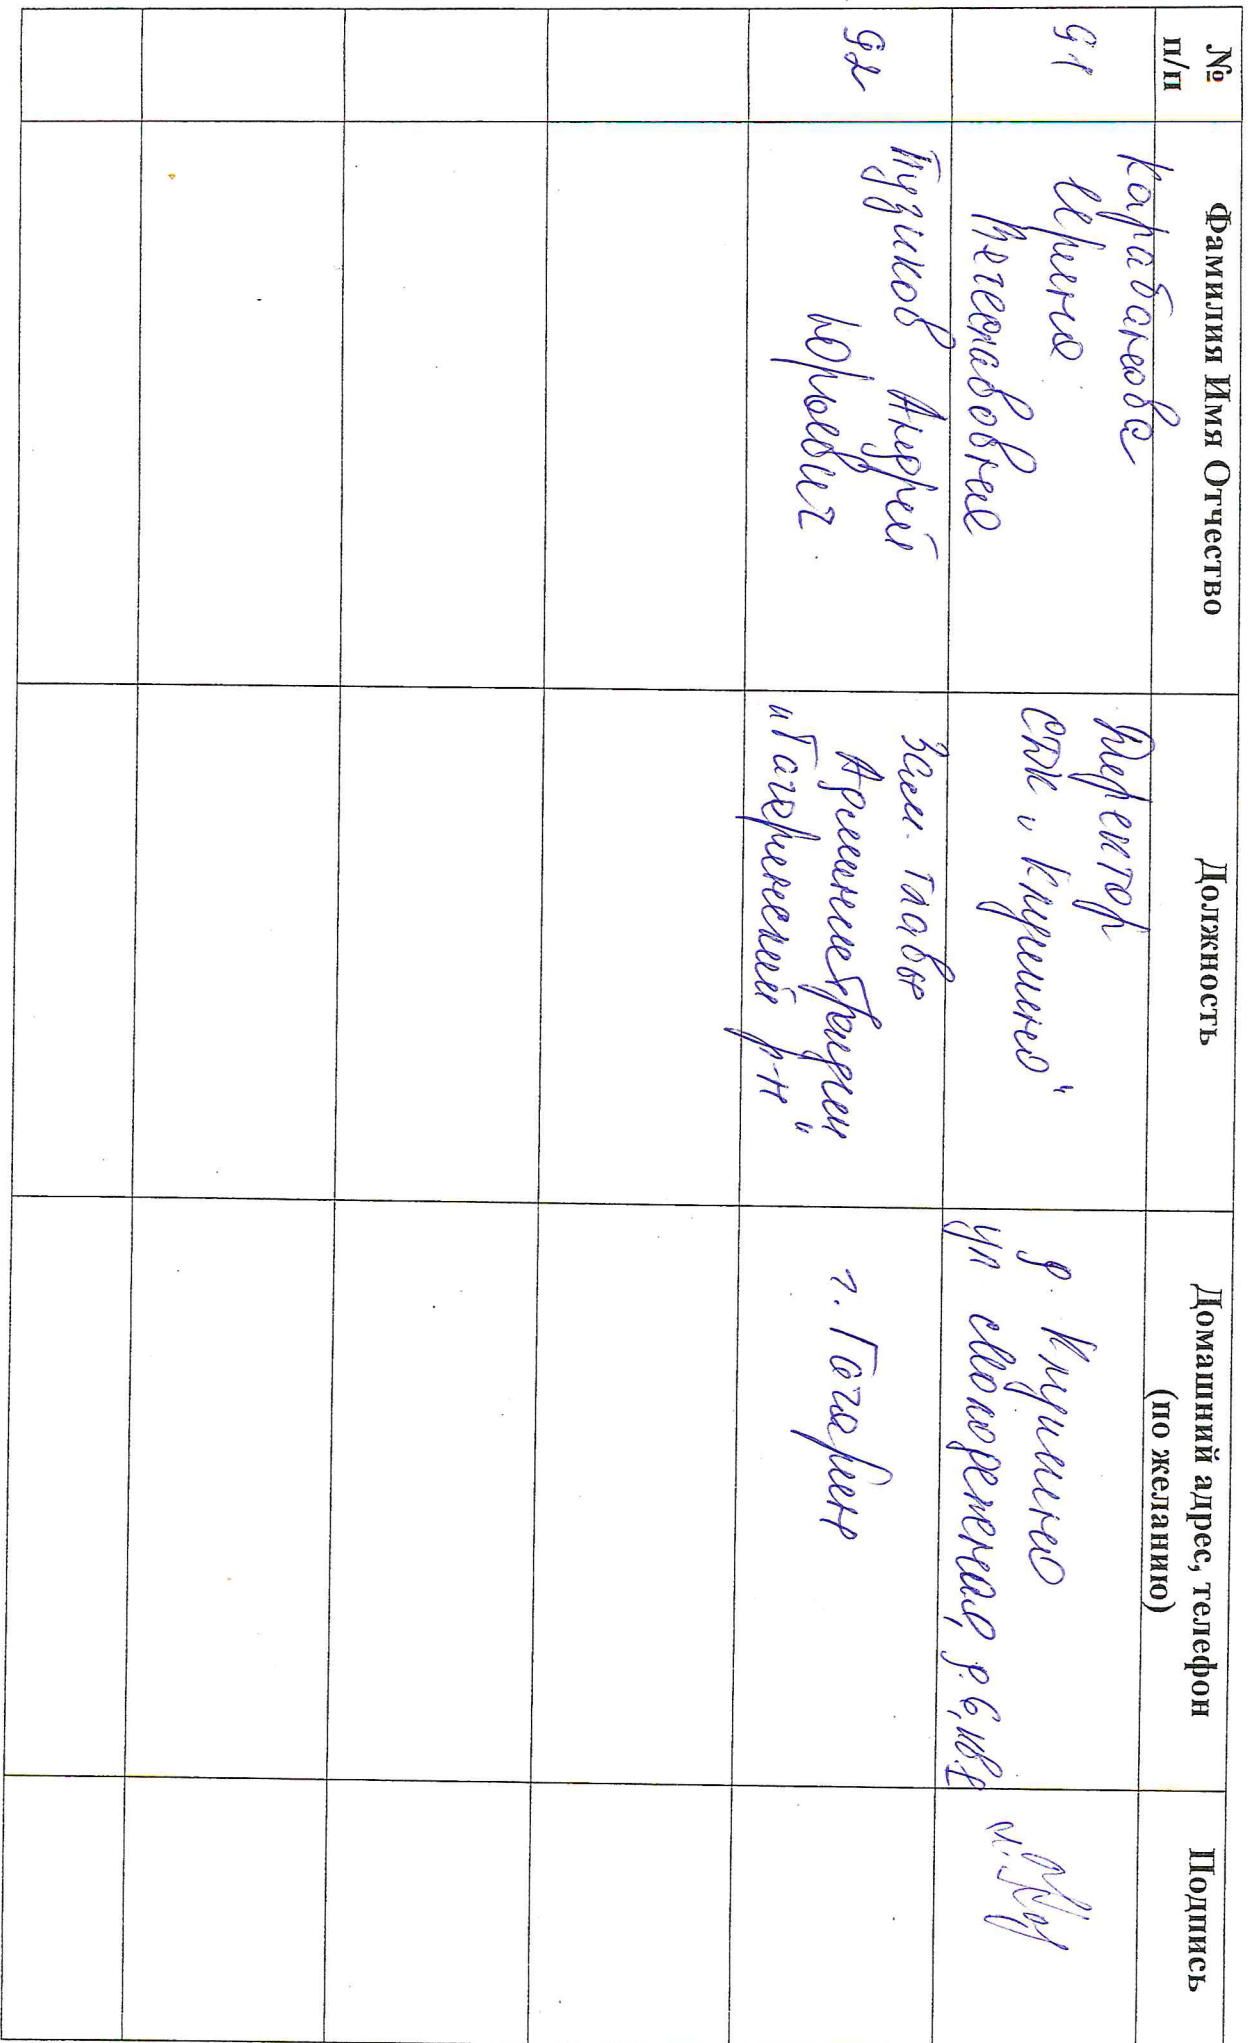 №
п/п
Фамилия Имя Отчество
Должность
Домашний адрес, телефон
(по желанию)
Подпись
91
Карабанова
Ирина
Вячеславовна
Директор
СДК „Клушино"
д. Клушино
ул Молодежная, д. 6, кв.
92
Пузиков Андрей
Юрьевич
Зам. главы
Администрации
„Гагаринский р-н"
г. Гагарин